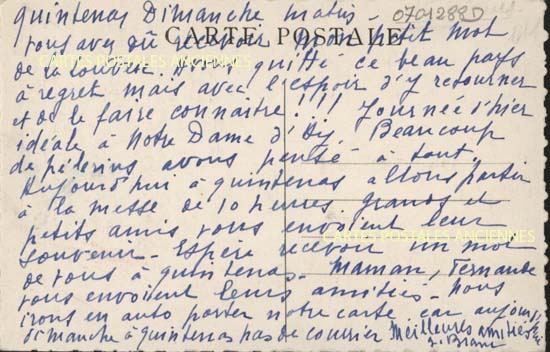 Quintenas Dimanche matin -
0701288D
vous avez dû recevoir mon petit mot
CARTE POSTALE
de la Louvesc. Avons quitté ce beau pays
à regret mais avec l'espoir d'y retourner
et de le faire connaitre !!! Journée d'hier
idéale à Notre Dame d'Ay. Beaucoup
de pélerins avons pensé à tout.
Aujourd'hui à Quintenas allons partir
à la messe de 10 heures. grands et
petits amis vous envoient leur
CARTES POSTALES ANCIENNES
souvenir - Espère recevoir un mot
de vous à Quintenas - Maman, Fernande
vous envoient leurs amitiés - nous
irons en auto porter notre carte car aujourd'hui
dimanche à Quintenas pas de courrier Meilleures amitiés